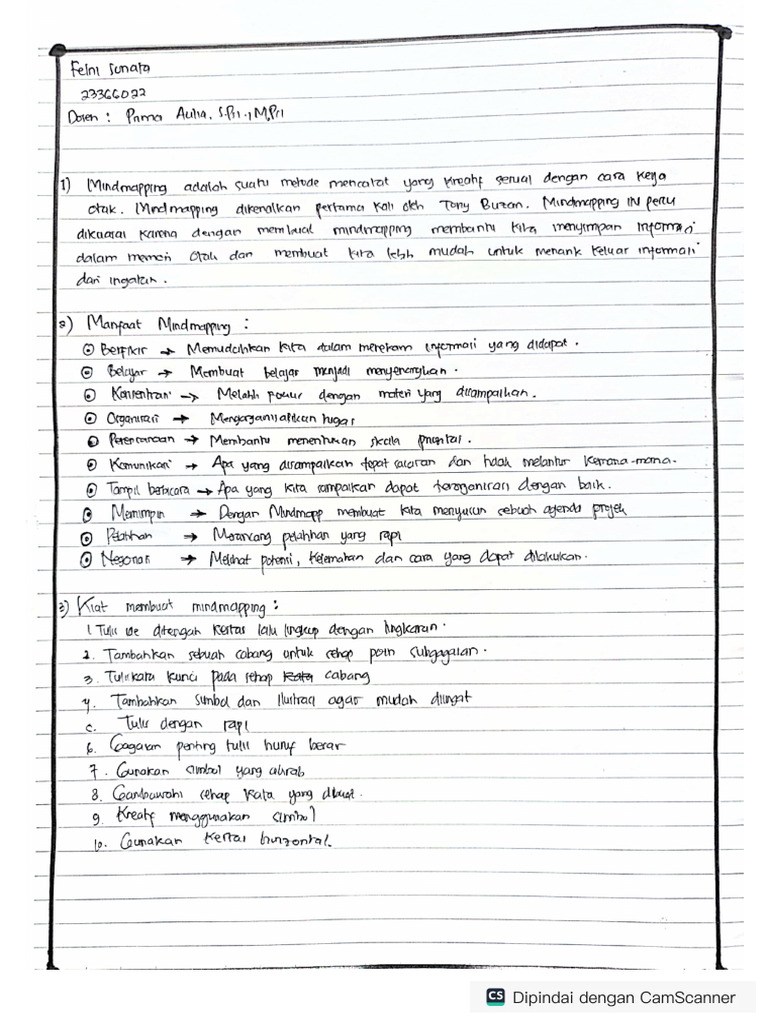 Felni Sunata
23366022
Dosen : Prima Aulia, S.Psi., M.Psi
1) Mindmapping adalah suatu metode mencatat yang kreatif sesuai dengan cara kerja
otak. Mindmapping dikenalkan pertama kali oleh Tony Buzan. Mindmapping ini perlu
dikuasai karena dengan membuat mindmapping membantu kita menyimpan informasi
dalam memori otak dan membuat kita lebih mudah untuk menarik keluar informasi
dari ingatan.
2) Manfaat Mindmapping :
Berfikir → Memudahkan kita dalam merekam informasi yang didapat.
Belajar → Membuat belajar menjadi menyenangkan.
Konsentrasi → Melatih fokus dengan materi yang disampaikan.
Organisasi → Mengorganisasikan tugas
Perencanaan → Membantu menentukan skala prioritas.
Komunikasi → Apa yang disampaikan tepat sasaran dan tidak melantur kemana-mana.
Tampil berbicara → Apa yang kita sampaikan dapat terorganisasi dengan baik.
Memimpin → Dengan Mindmapp membuat kita menyusun sebuah agenda projek
Pelatihan → Merancang pelatihan yang rapi
Negosiasi → Melihat potensi, kelemahan dan cara yang dapat dilakukan.
3) Kiat membuat mindmapping :
1. Tulis ide ditengah kertas lalu lingkup dengan lingkaran.
2. Tambahkan sebuah cabang untuk setiap poin subgagasan.
3. Tulis kata kunci pada setiap kata cabang
4. Tambahkan simbol dan ilustrasi agar mudah diingat
5. Tulis dengan rapi
6. Gagasan penting tulis huruf besar
7. Gunakan simbol yang akrab
8. Garisbawahi setiap kata yang dibuat.
9. Kreatif menggunakan simbol
10. Gunakan kertas horizontal.
CS Dipindai dengan CamScanner